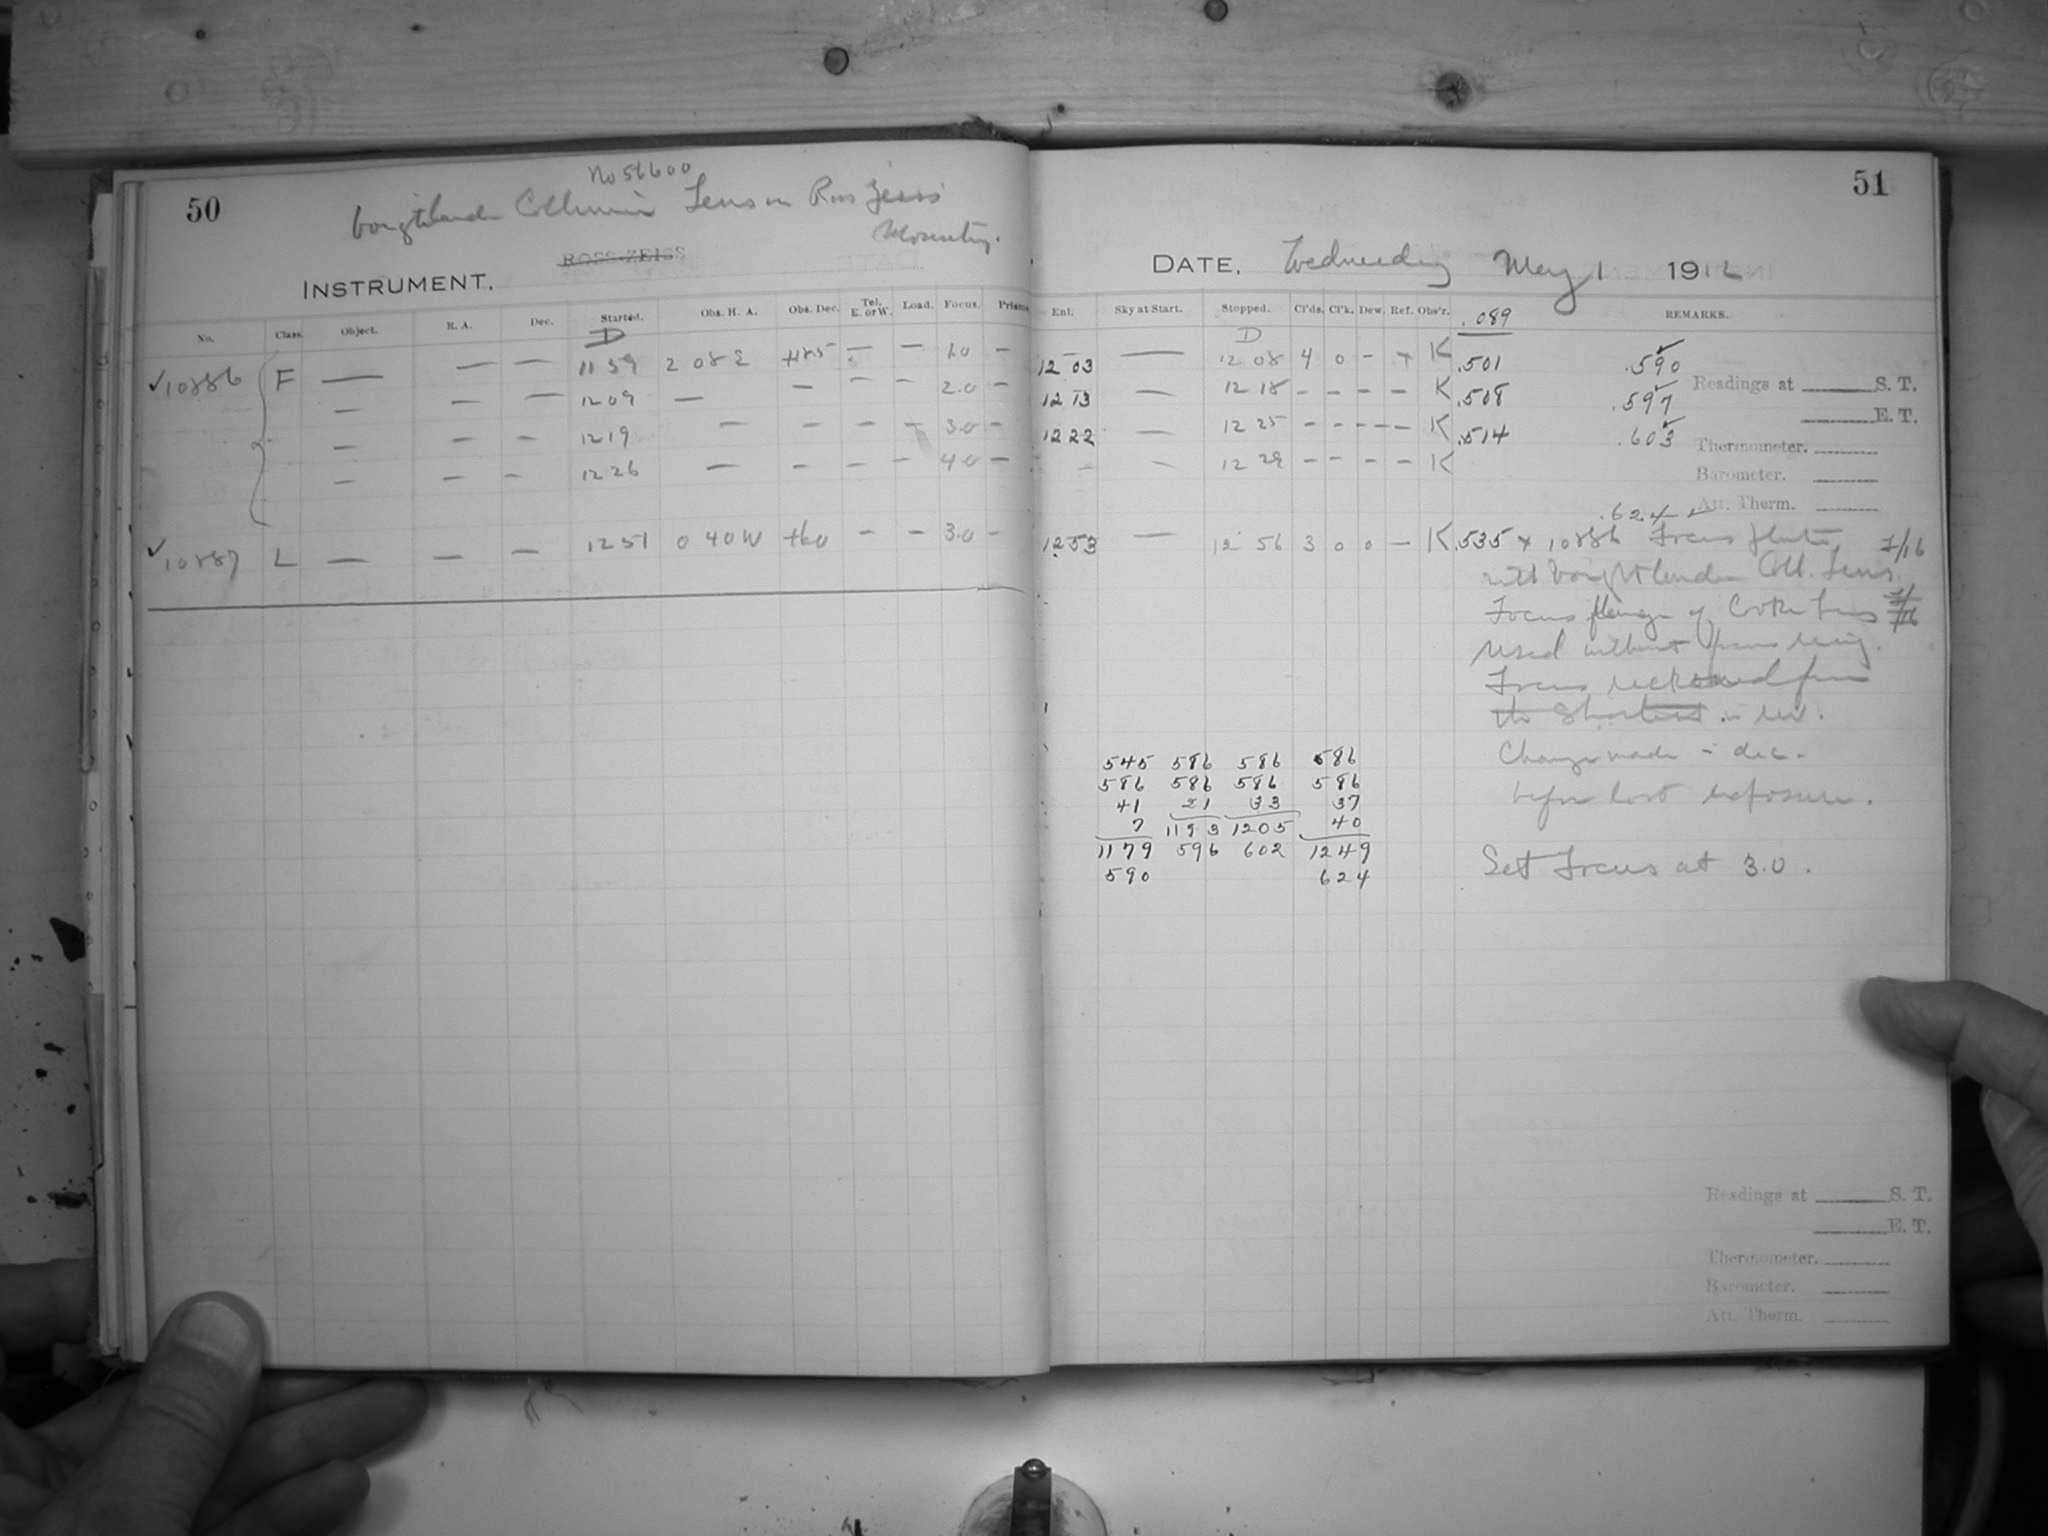 50
No 56600
Voigtlander Lens on Ross Zeiss
Mounting.
INSTRUMENT. ROSS-ZEISS
No. Class. Object. R. A. Dec. Started. Obs. H. A. Obs. Dec. Tel. E. or W. Load. Focus. Prisms
D
✓10886 F — — — 11 59 2 08 E +18.5 — — 1.0 —
— — — 12 09 — — — — 2.0 —
— — — 12 19 — — — — 3.0 —
— — — 12 26 — — — — 4.0 —
✓10887 L — — — 12 51 0 40 W +60 — — 3.0 —
51
DATE, Wednesday May 1 1912
Enl. Sky at Start. Stopped. Cl'ds. Cl'k. Dew. Ref. Obs'r. .089 REMARKS.
D
12 03 — 12 08 4 0 — + K .501 .590 ✓
Readings at S. T.
12 13 — 12 18 — — — — K .508 .597 ✓
E. T.
12 22 — 12 25 — — — — K .514 .603 ✓
Thermometer.
— — 12 29 — — — — K
Barometer.
.624 ✓ Att. Therm.
12 53 — 12 56 3 0 0 — K .535 × 10886 Focus plate, 7/16
with Voigtlander Coll. Lens.
Focus flange of Cooke Lens
used without focus ring.
Focus reckoned from
the shortest
Change made – dec.
before last exposure.
545 586 586 586
586 586 586 586
41 21 33 37
7 1193 1205 40
1179 596 602 1249
590 624
Set Focus at 3.0.
Readings at S. T.
E. T.
Thermometer.
Barometer.
Att. Therm.